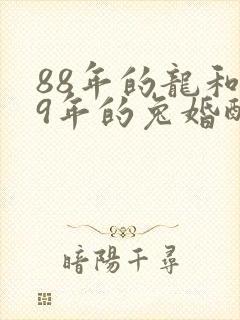 88年的龍和
9年的兔婚配
暗陽千尋